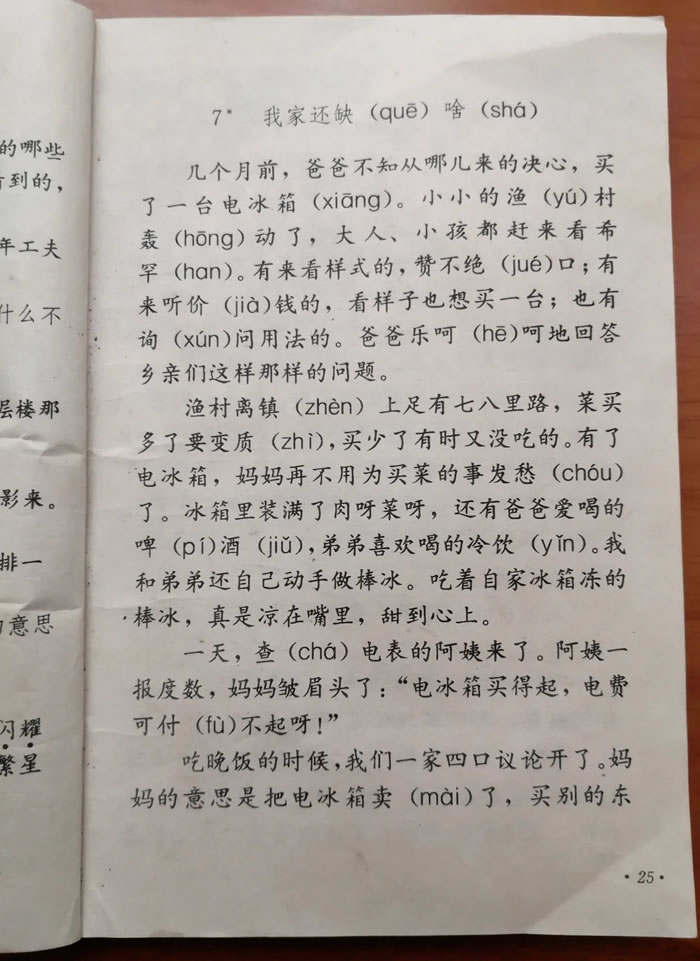 的哪些
看到的，
年工夫
什么不
层楼那
影来。
排一
的意思
闪耀
繁星
7* 我家还缺（quē）啥（shá）
几个月前，爸爸不知从哪儿来的决心，买
了一台电冰箱（xiāng）。小小的渔（yú）村
轰（hōng）动了，大人、小孩都赶来看希
罕（han）。有来看样式的，赞不绝（jué）口；有
来听价（jià）钱的，看样子也想买一台；也有
询（xún）问用法的。爸爸乐呵（hē）呵地回答
乡亲们这样那样的问题。
渔村离镇（zhèn）上足有七八里路，菜买
多了要变质（zhì），买少了有时又没吃的。有了
电冰箱，妈妈再不用为买菜的事发愁（chóu）
了。冰箱里装满了肉呀菜呀，还有爸爸爱喝的
啤（pí）酒（jiǔ），弟弟喜欢喝的冷饮（yǐn）。我
和弟弟还自己动手做棒冰。吃着自家冰箱冻的
棒冰，真是凉在嘴里，甜到心上。
一天，查（chá）电表的阿姨来了。阿姨一
报度数，妈妈皱眉头了：“电冰箱买得起，电费
可付（fù）不起呀！”
吃晚饭的时候，我们一家四口议论开了。妈
妈的意思是把电冰箱卖（mài）了，买别的东
·25·